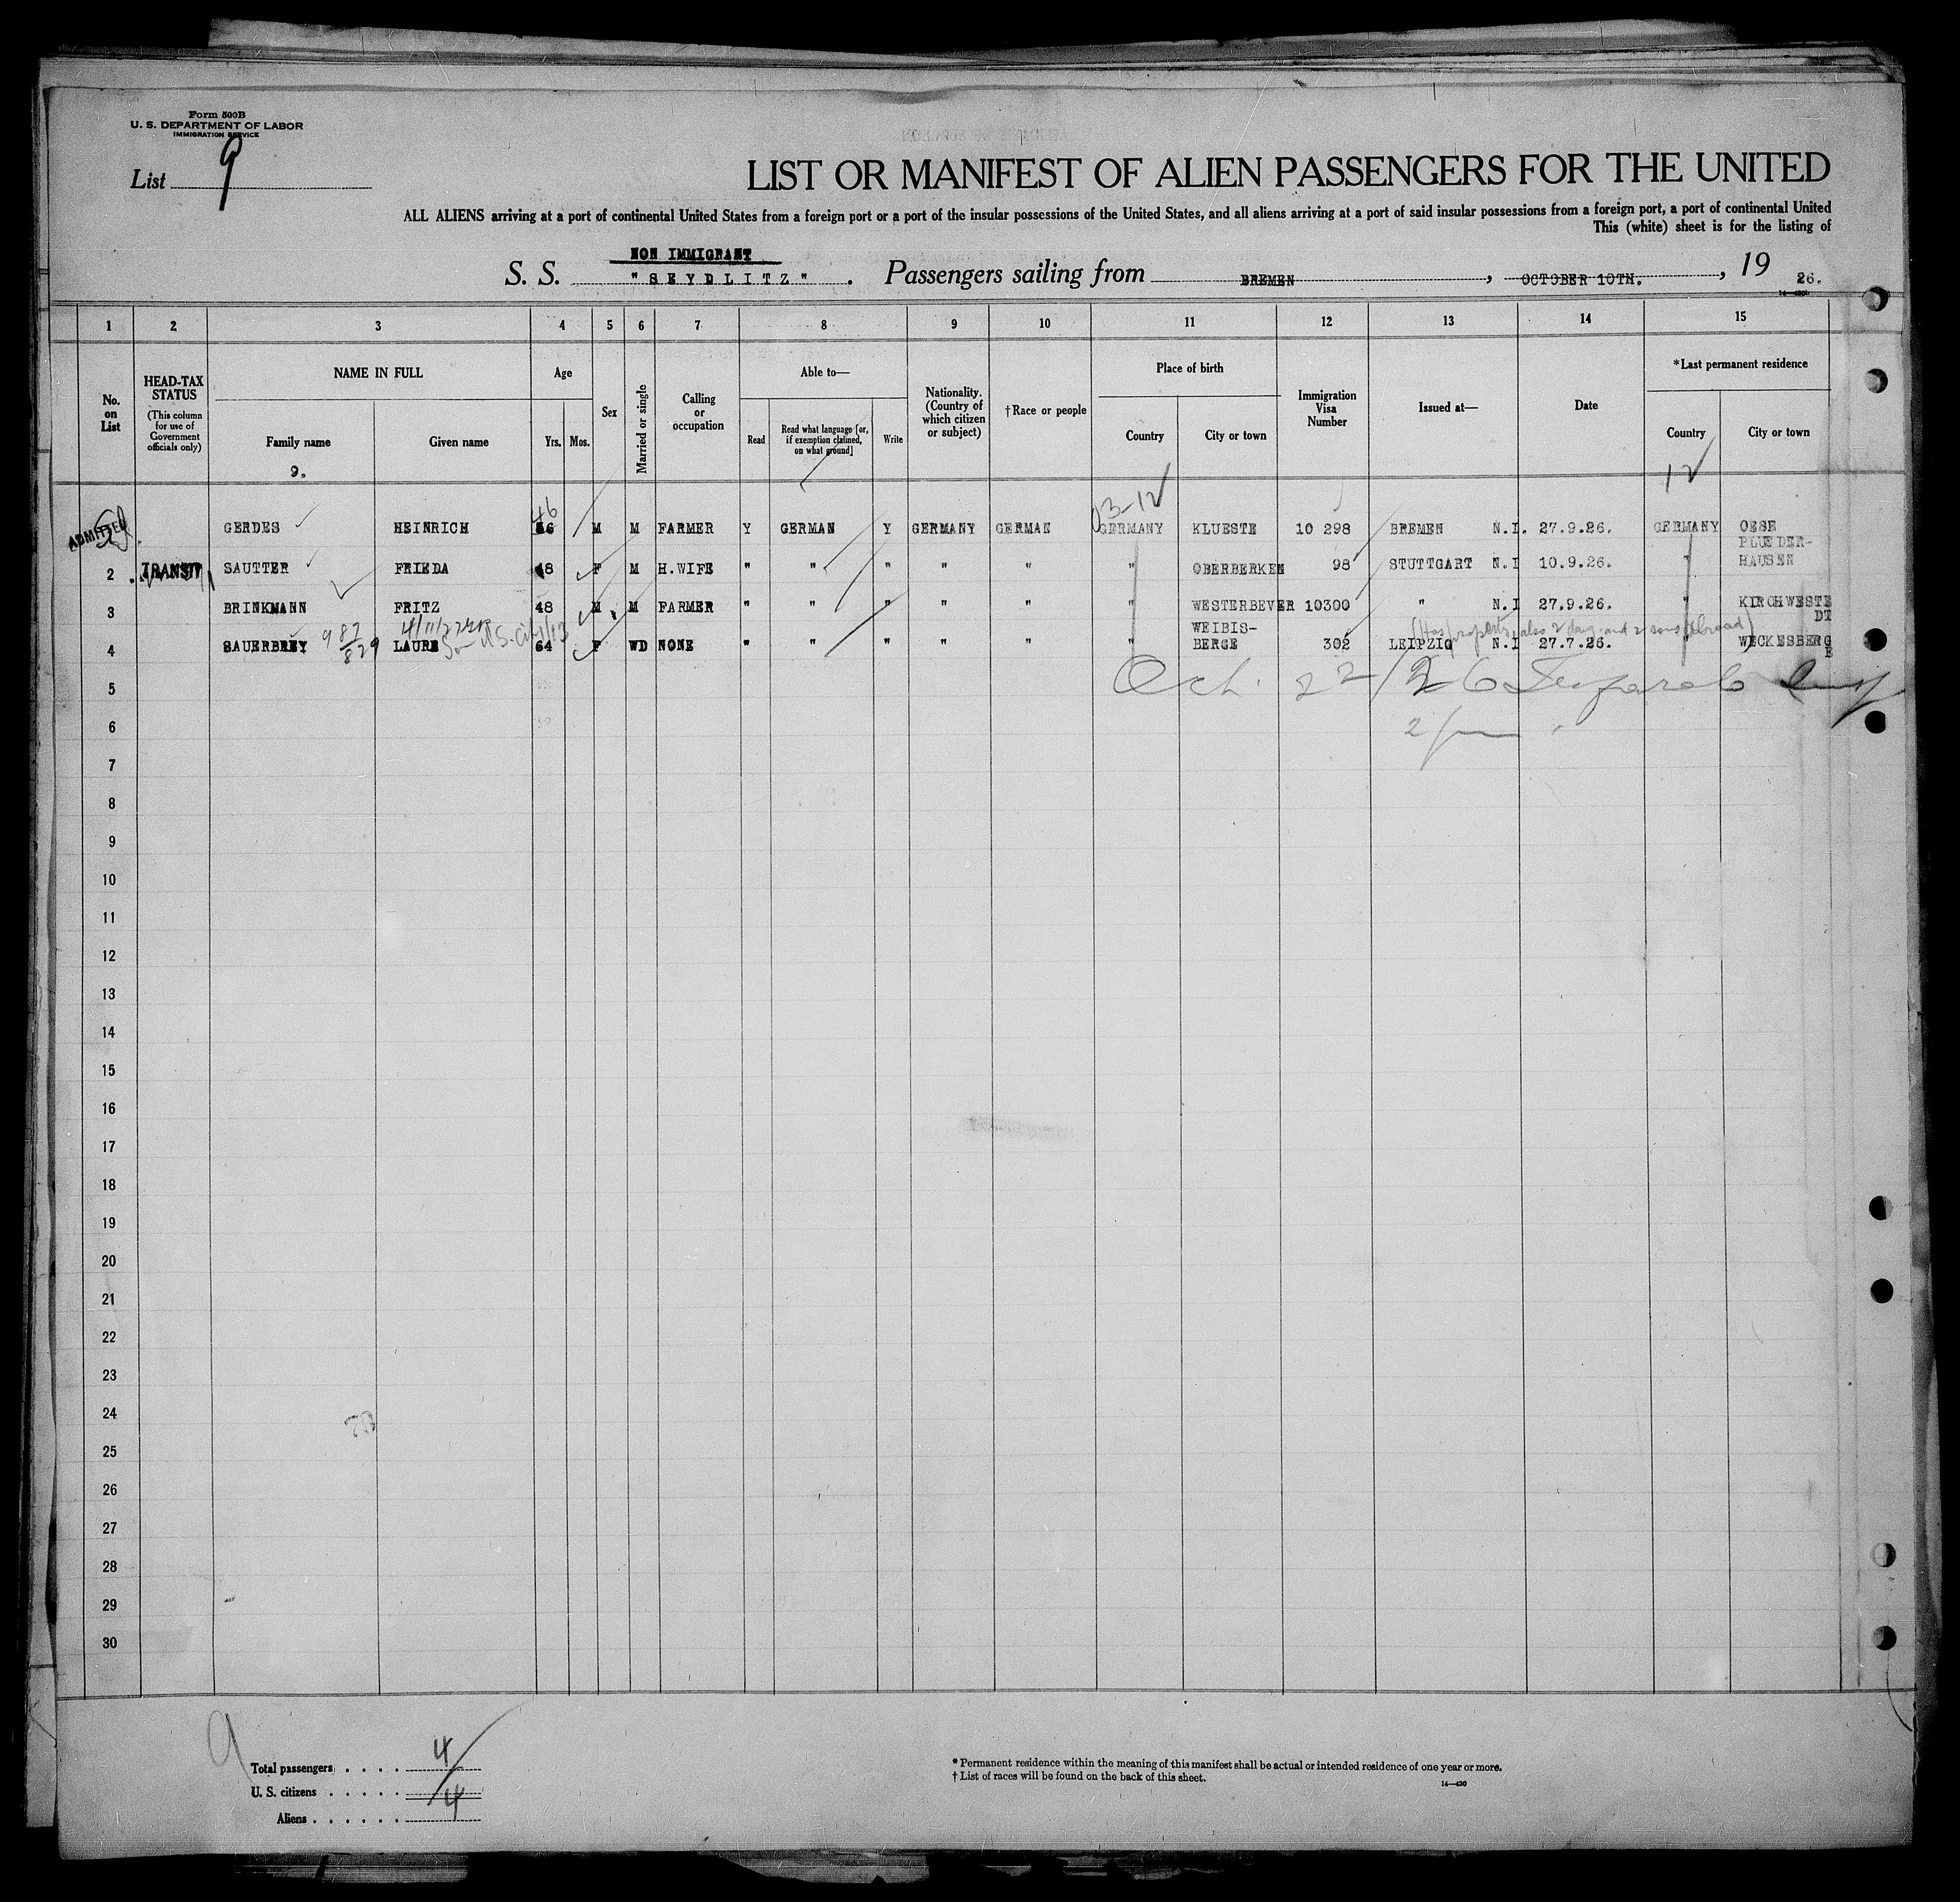 Form 500B
U. S. DEPARTMENT OF LABOR
IMMIGRATION SERVICE
List 9
LIST OR MANIFEST OF ALIEN PASSENGERS FOR THE UNITED
ALL ALIENS arriving at a port of continental United States from a foreign port or a port of the insular possessions of the United States, and all aliens arriving at a port of said insular possessions from a foreign port, a port of continental United
This (white) sheet is for the listing of
NON IMMIGRANT
S. S. "SEYDLITZ". Passengers sailing from BREMEN, OCTOBER 10TH., 19 26.
1 2 3 4 5 6 7 8 9 10 11 12 13 14 15
No. on List
HEAD-TAX STATUS (This column for use of Government officials only)
NAME IN FULL
Family name
Given name
9.
Age
Yrs. Mos.
Sex
Married or single
Calling or occupation
Able to—
Read
Read what language [or, if exemption claimed, on what ground]
Write
Nationality. (Country of which citizen or subject)
†Race or people
Place of birth
Country
City or town
Immigration Visa Number
Issued at—
Date
*Last permanent residence
Country
City or town
03-12 12
46
ADMITTED GERDES HEINRICH M M FARMER Y GERMAN Y GERMANY GERMAN GERMANY KLUESTE 10 298 BREMEN N.I. 27.9.26. GERMANY OESE
2 TRANSIT SAUTTER FRIEDA 48 F M H.WIFE " " " " " " OBERBERKEN 98 STUTTGART N.I 10.9.26. " PLUEDER-HAUSEN
3 BRINKMANN FRITZ 48 M M FARMER " " " " " " WESTERBEVER 10300 " N.I 27.9.26. " KIRCHWESTE DT
(Has property, also 2 daug. and 2 sons abroad)
4 SAUERBREY LAURE 64 F WD NONE " " " " " " WEIBIS-BERGE 302 LEIPZIG N.I 27.7.26. " WECKESBERG E
5 Oct. 22/26
6
7
8
9
10
11
12
13
14
15
16
17
18
19
20
21
22
23
24
25
26
27
28
29
30
9
Total passengers . . . . . 4
U. S. citizens . . . . . .
Aliens . . . . . . 4
* Permanent residence within the meaning of this manifest shall be actual or intended residence of one year or more.
† List of races will be found on the back of this sheet.
14—430